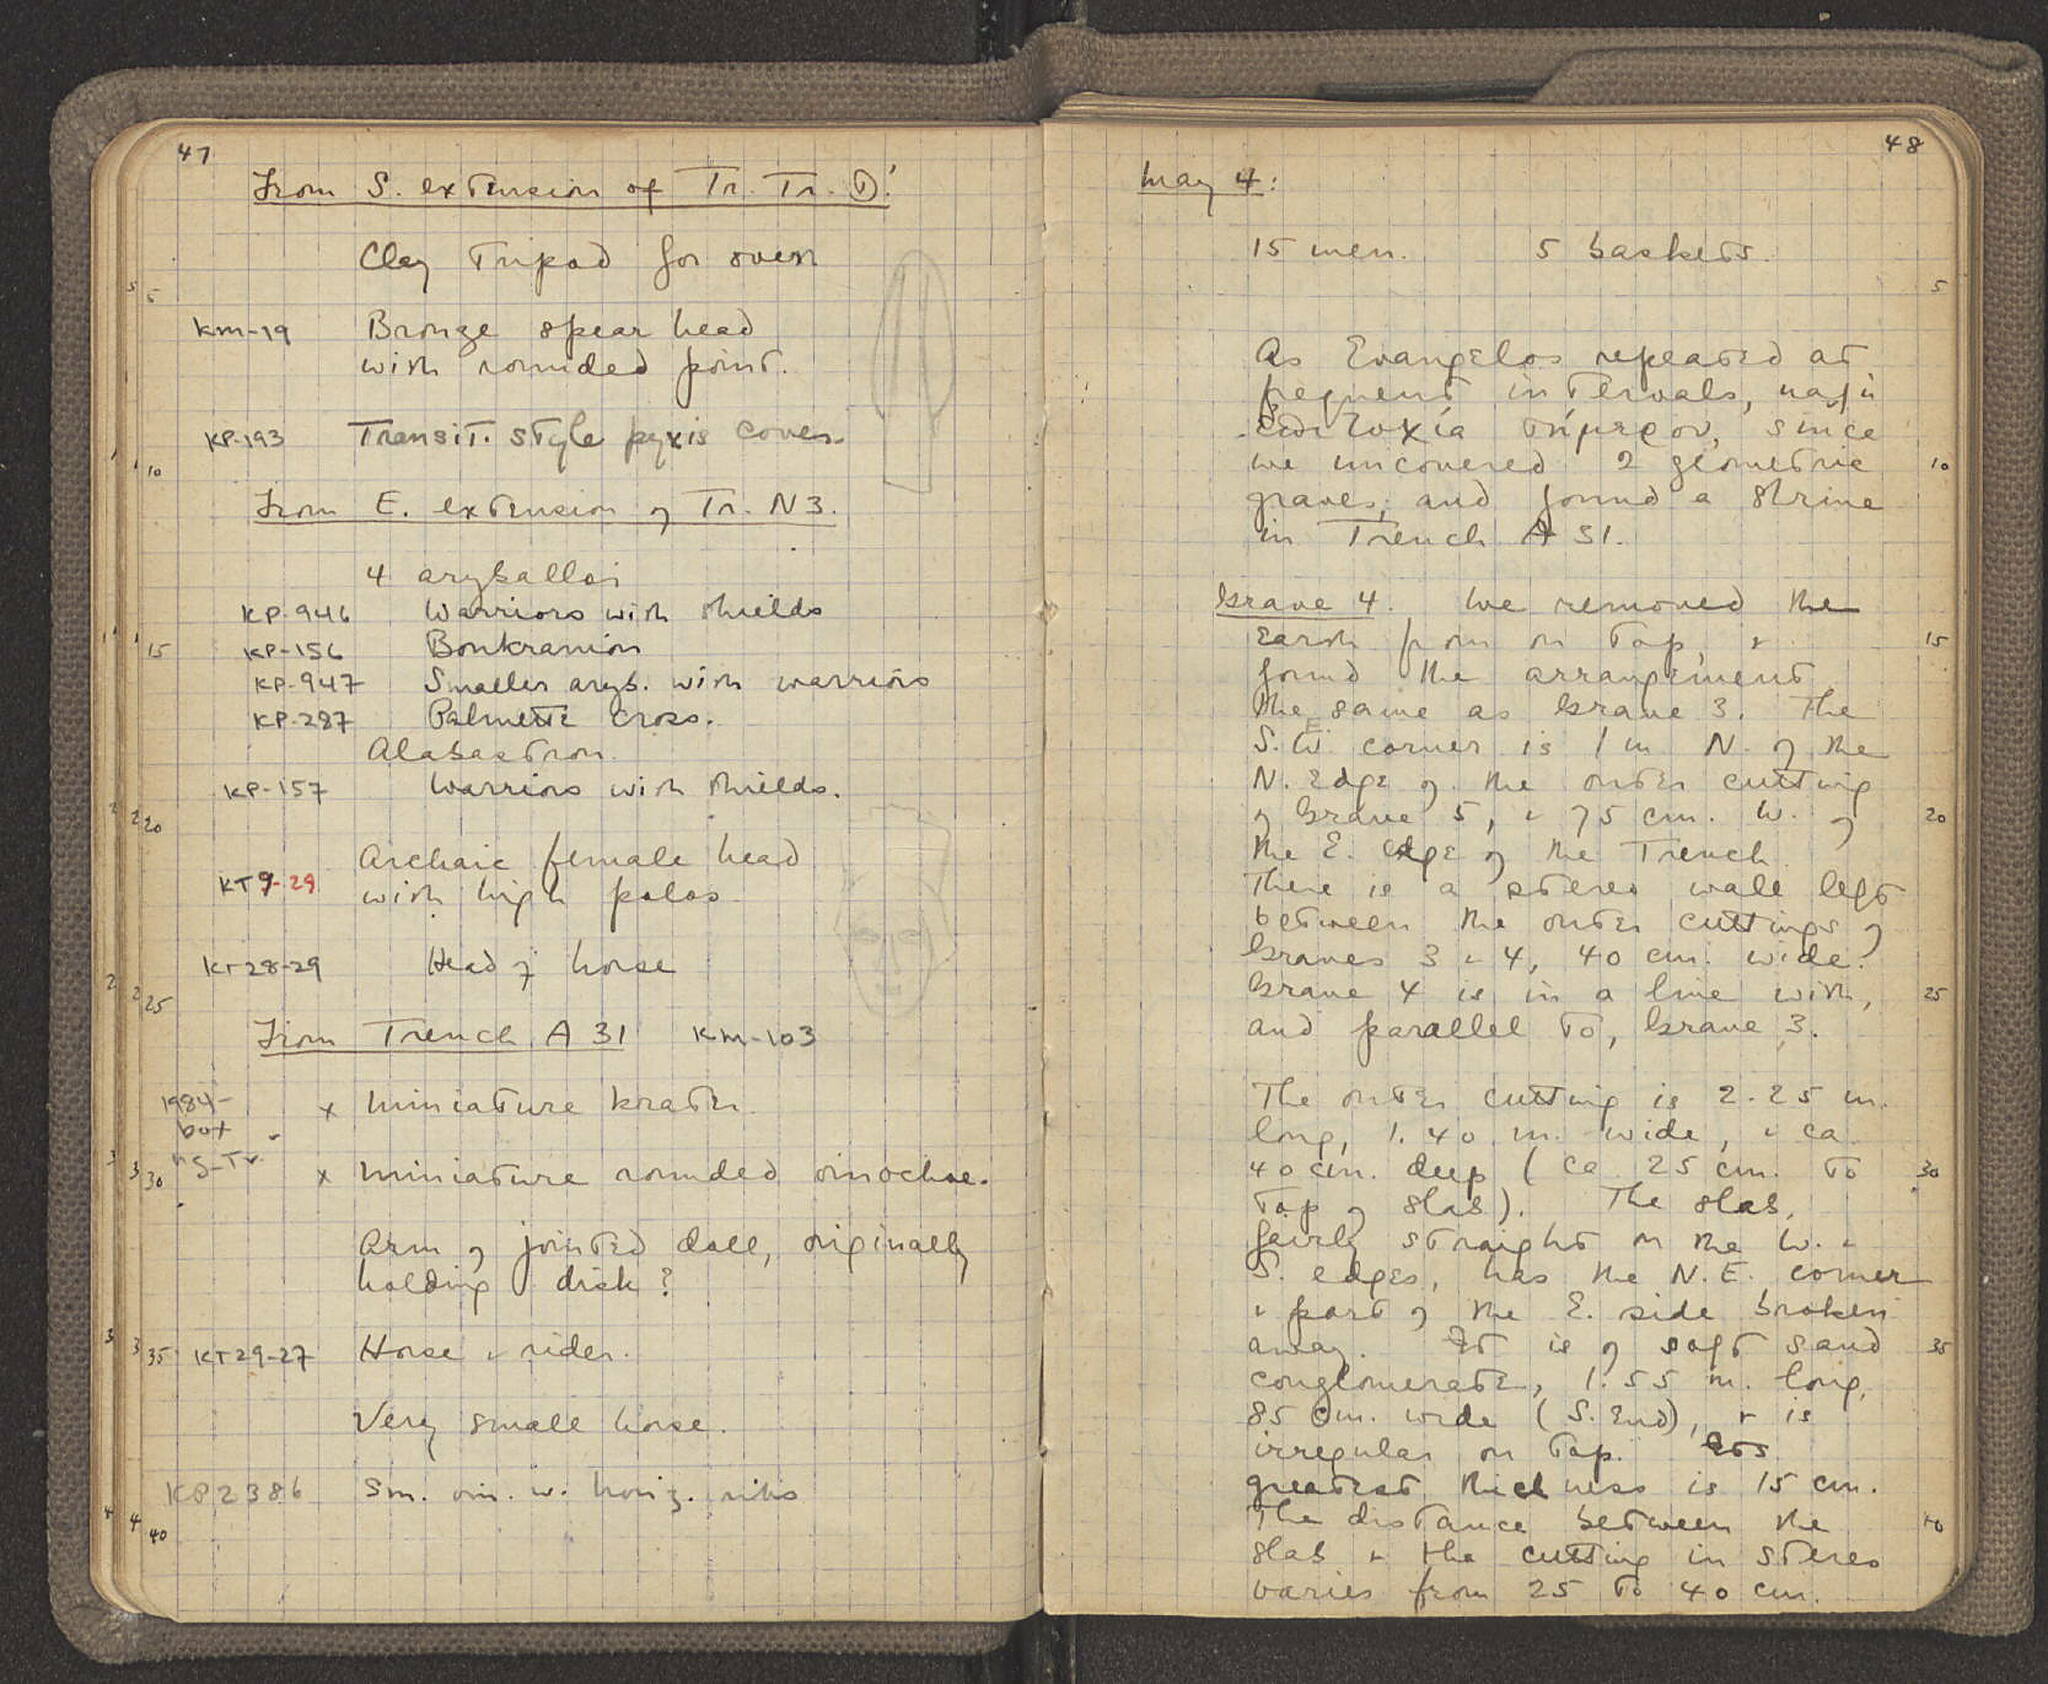 47
From S. extension of Tr. Tr. D:
Clay tripod for oven
KM-19 Bronze spear head
with rounded point.
KP-193 Transit. style pyxis cover.
From E. extension of Tr. N3.
4 aryballoi
KP-946 Warriors with shields
KP-156 Boukranion
KP-947 Smaller aryb. with warriors
KP-287 Palmette cross.
Alabastron.
KP-157 Warriors with shields.
Archaic female head
KT9-29 with high polos
KT28-29 Head of horse
From Trench A 31 KM-103
1984-
box
x Miniature krater.
x Miniature rounded oinochoe.
Arm of jointed doll, originally
holding disk?
KT29-27 Horse & rider.
Very small horse.
KP2386 Sm. oin. w. horiz. ribs
5 5
10
15
20
25
30
35
40
48
May 4:
15 men. 5 baskets.
As Evangelos repeated at
frequent intervals, since
we uncovered 2 geometric
graves, and found a shrine
in Trench A 31.
Grave 4. We removed the
earth from on top, &
found the arrangement
the same as Grave 3. The
S.W. E corner is 1 m N. of the
N. edge of the outer cutting
of Grave 5, & 75 cm. W. of
the E. edge of the Trench.
There is a stereo wall left
between the outer cuttings of
Graves 3 & 4, 40 cm. wide.
Grave 4 is in a line with,
and parallel to, Grave 3.
The outer cutting is 2.25 m.
long, 1.40 m. wide, & ca
40 cm. deep (ca 25 cm. to
top of slab). The slab,
fairly straight on the W. &
S. edges, has the N.E. corner
& part of the E. side broken
away. It is of soft sand
conglomerate, 1.55 m. long,
85 cm. wide (S. End), & is
irregular on top. Its
greatest thickness is 15 cm.
The distance between the
slab & the cutting in stereo
varies from 25 to 40 cm.
5
10
15
20
25
30
35
40